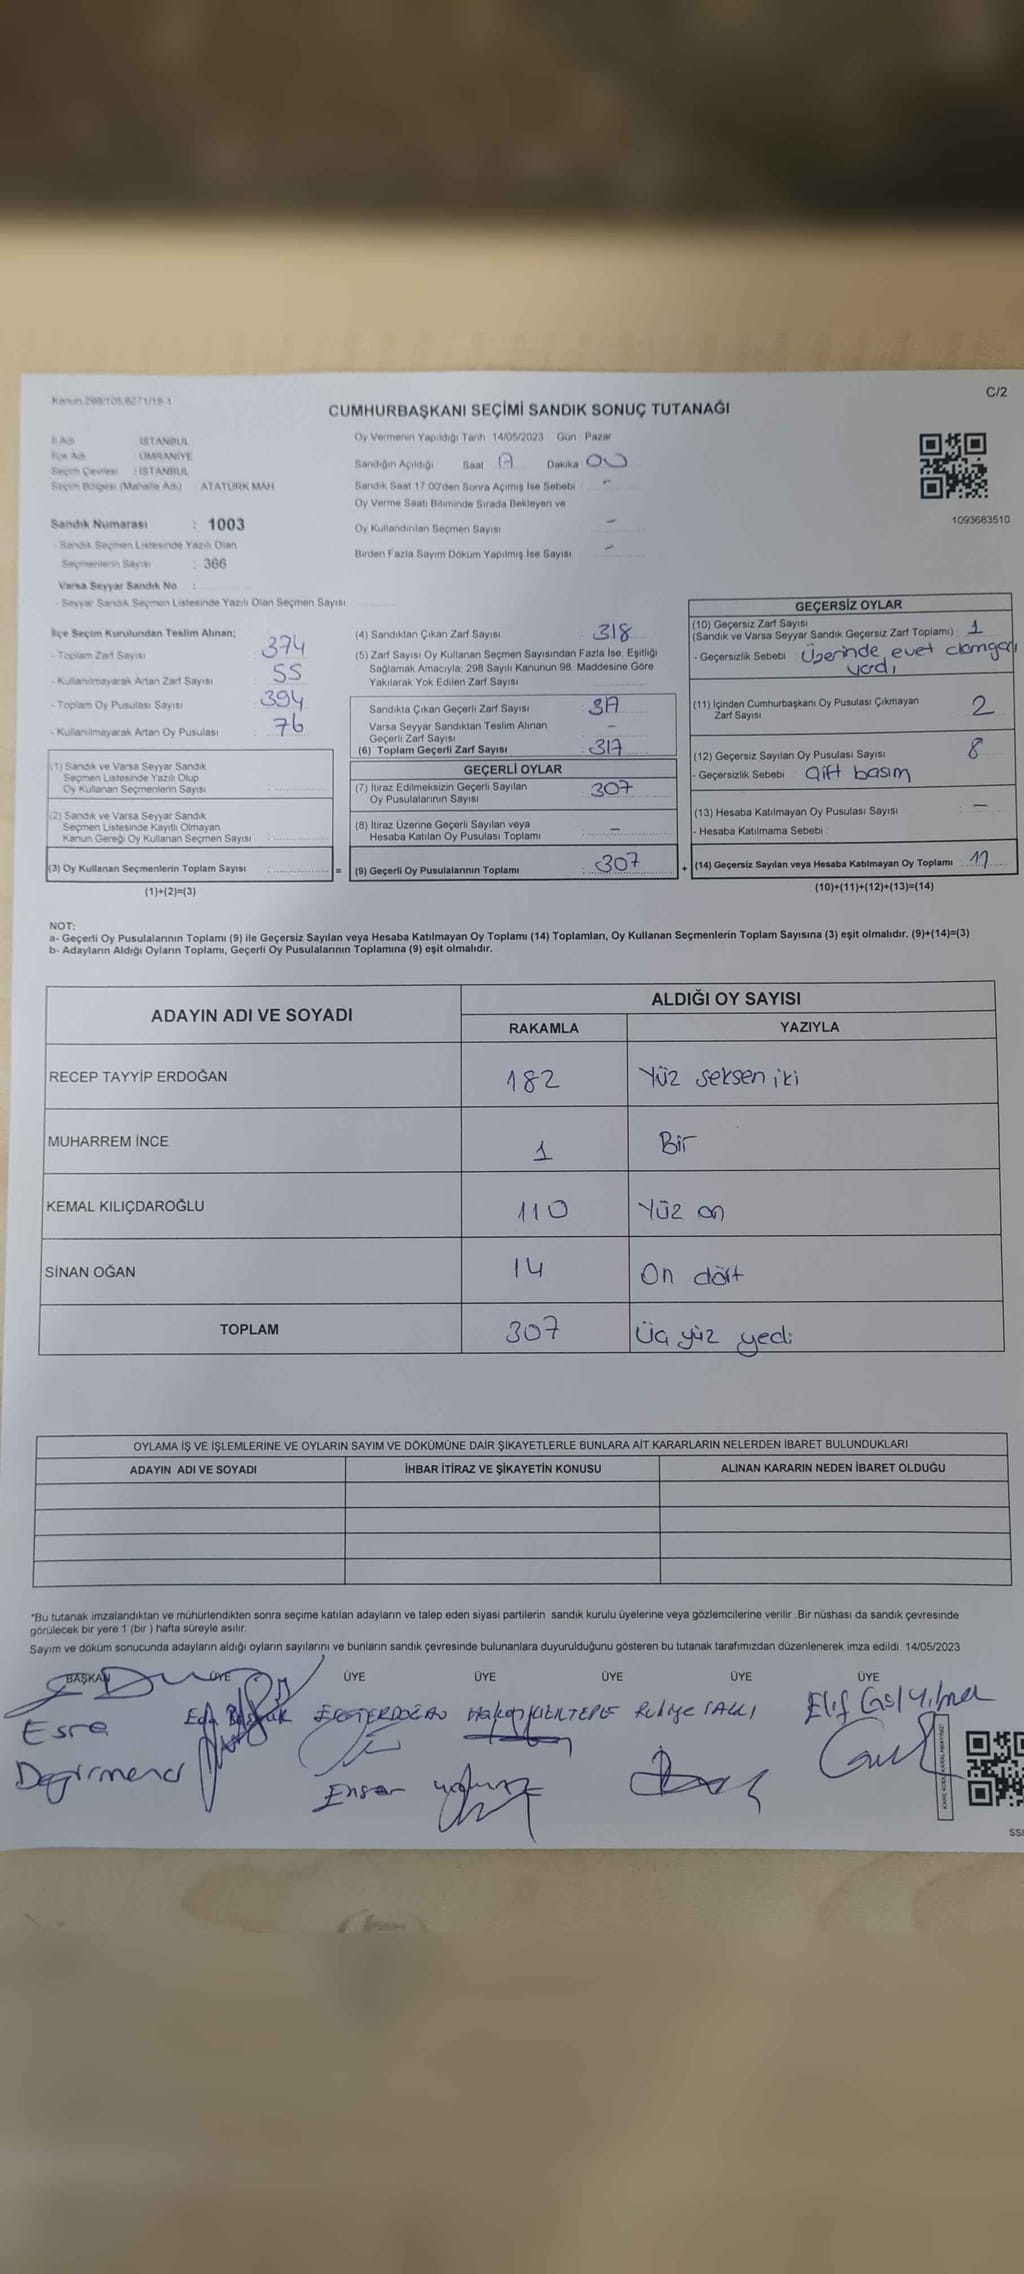 Kanun 298/105,6271/19-1
C/2
CUMHURBAŞKANI SEÇİMİ SANDIK SONUÇ TUTANAĞI
İl Adı : İSTANBUL
İlçe Adı : ÜMRANİYE
Seçim Çevresi : İSTANBUL
Seçim Bölgesi (Mahalle Adı) ATATÜRK MAH
Sandık Numarası : 1003
- Sandık Seçmen Listesinde Yazılı Olan
Seçmenlerin Sayısı : 366
Varsa Seyyar Sandık No :
- Seyyar Sandık Seçmen Listesinde Yazılı Olan Seçmen Sayısı
Oy Vermenin Yapıldığı Tarih 14/05/2023 Gün Pazar
Sandığın Açıldığı Saat 17 Dakika 00
Sandık Saat 17.00'den Sonra Açımış İse Sebebi -
Oy Verme Saati Bitiminde Sırada Bekleyen ve
Oy Kullandırılan Seçmen Sayısı -
Birden Fazla Sayım Döküm Yapılmış İse Sayısı -
1093683510
İlçe Seçim Kurulundan Teslim Alınan;
- Toplam Zarf Sayısı : 374
- Kullanılmayarak Artan Zarf Sayısı : 55
- Toplam Oy Pusulası Sayısı : 394
- Kullanılmayarak Artan Oy Pusulası : 76
(1) Sandık ve Varsa Seyyar Sandık
Seçmen Listesinde Yazılı Olup
Oy Kullanan Seçmenlerin Sayısı :
(2) Sandık ve Varsa Seyyar Sandık
Seçmen Listesinde Kayıtlı Olmayan
Kanun Gereği Oy Kullanan Seçmen Sayısı :
(3) Oy Kullanan Seçmenlerin Toplam Sayısı :
(1)+(2)=(3)
(4) Sandıktan Çıkan Zarf Sayısı : 318
(5) Zarf Sayısı Oy Kullanan Seçmen Sayısından Fazla İse, Eşitliği
Sağlamak Amacıyla, 298 Sayılı Kanunun 98. Maddesine Göre
Yakılarak Yok Edilen Zarf Sayısı :
Sandıkta Çıkan Geçerli Zarf Sayısı : 317
Varsa Seyyar Sandıktan Teslim Alınan
Geçerli Zarf Sayısı : -
(6) Toplam Geçerli Zarf Sayısı : 317
GEÇERLİ OYLAR
(7) İtiraz Edilmeksizin Geçerli Sayılan
Oy Pusulalarının Sayısı : 307
(8) İtiraz Üzerine Geçerli Sayılan veya
Hesaba Katılan Oy Pusulası Toplamı : -
= (9) Geçerli Oy Pusulalarının Toplamı : 307 +
GEÇERSİZ OYLAR
(10) Geçersiz Zarf Sayısı
(Sandık ve Varsa Seyyar Sandık Geçersiz Zarf Toplamı) : 1
- Geçersizlik Sebebi : Üzerinde evet damgası
vardı
(11) İçinden Cumhurbaşkanı Oy Pusulası Çıkmayan
Zarf Sayısı : 2
(12) Geçersiz Sayılan Oy Pusulası Sayısı : 8
- Geçersizlik Sebebi : Çift basım
(13) Hesaba Katılmayan Oy Pusulası Sayısı : -
- Hesaba Katılmama Sebebi :
(14) Geçersiz Sayılan veya Hesaba Katılmayan Oy Toplamı : 11
(10)+(11)+(12)+(13)=(14)
NOT:
a- Geçerli Oy Pusulalarının Toplamı (9) ile Geçersiz Sayılan veya Hesaba Katılmayan Oy Toplamı (14) Toplamları, Oy Kullanan Seçmenlerin Toplam Sayısına (3) eşit olmalıdır. (9)+(14)=(3)
b- Adayların Aldığı Oyların Toplamı, Geçerli Oy Pusulalarının Toplamına (9) eşit olmalıdır.
ADAYIN ADI VE SOYADI ALDIĞI OY SAYISI
RAKAMLA YAZIYLA
RECEP TAYYİP ERDOĞAN 182 Yüz seksen iki
MUHARREM İNCE 1 Bir
KEMAL KILIÇDAROĞLU 110 Yüz on
SİNAN OĞAN 14 On dört
TOPLAM 307 Üç yüz yedi
OYLAMA İŞ VE İŞLEMLERİNE VE OYLARIN SAYIM VE DÖKÜMÜNE DAİR ŞİKAYETLERLE BUNLARA AİT KARARLARIN NELERDEN İBARET BULUNDUKLARI
ADAYIN ADI VE SOYADI İHBAR İTİRAZ VE ŞİKAYETİN KONUSU ALINAN KARARIN NEDEN İBARET OLDUĞU
*Bu tutanak imzalandıktan ve mühürlendikten sonra seçime katılan adayların ve talep eden siyasi partilerin sandık kurulu üyelerine veya gözlemcilerine verilir. Bir nüshası da sandık çevresinde
görülecek bir yere 1 (bir ) hafta süreyle asılır.
Sayım ve döküm sonucunda adayların aldığı oyların sayılarını ve bunların sandık çevresinde bulunanlara duyurulduğunu gösteren bu tutanak tarafımızdan düzenlenerek imza edildi. 14/05/2023
BAŞKAN ÜYE ÜYE ÜYE ÜYE ÜYE ÜYE
Esra
Değirmenci
Ensar
Elif Gül Yılmaz